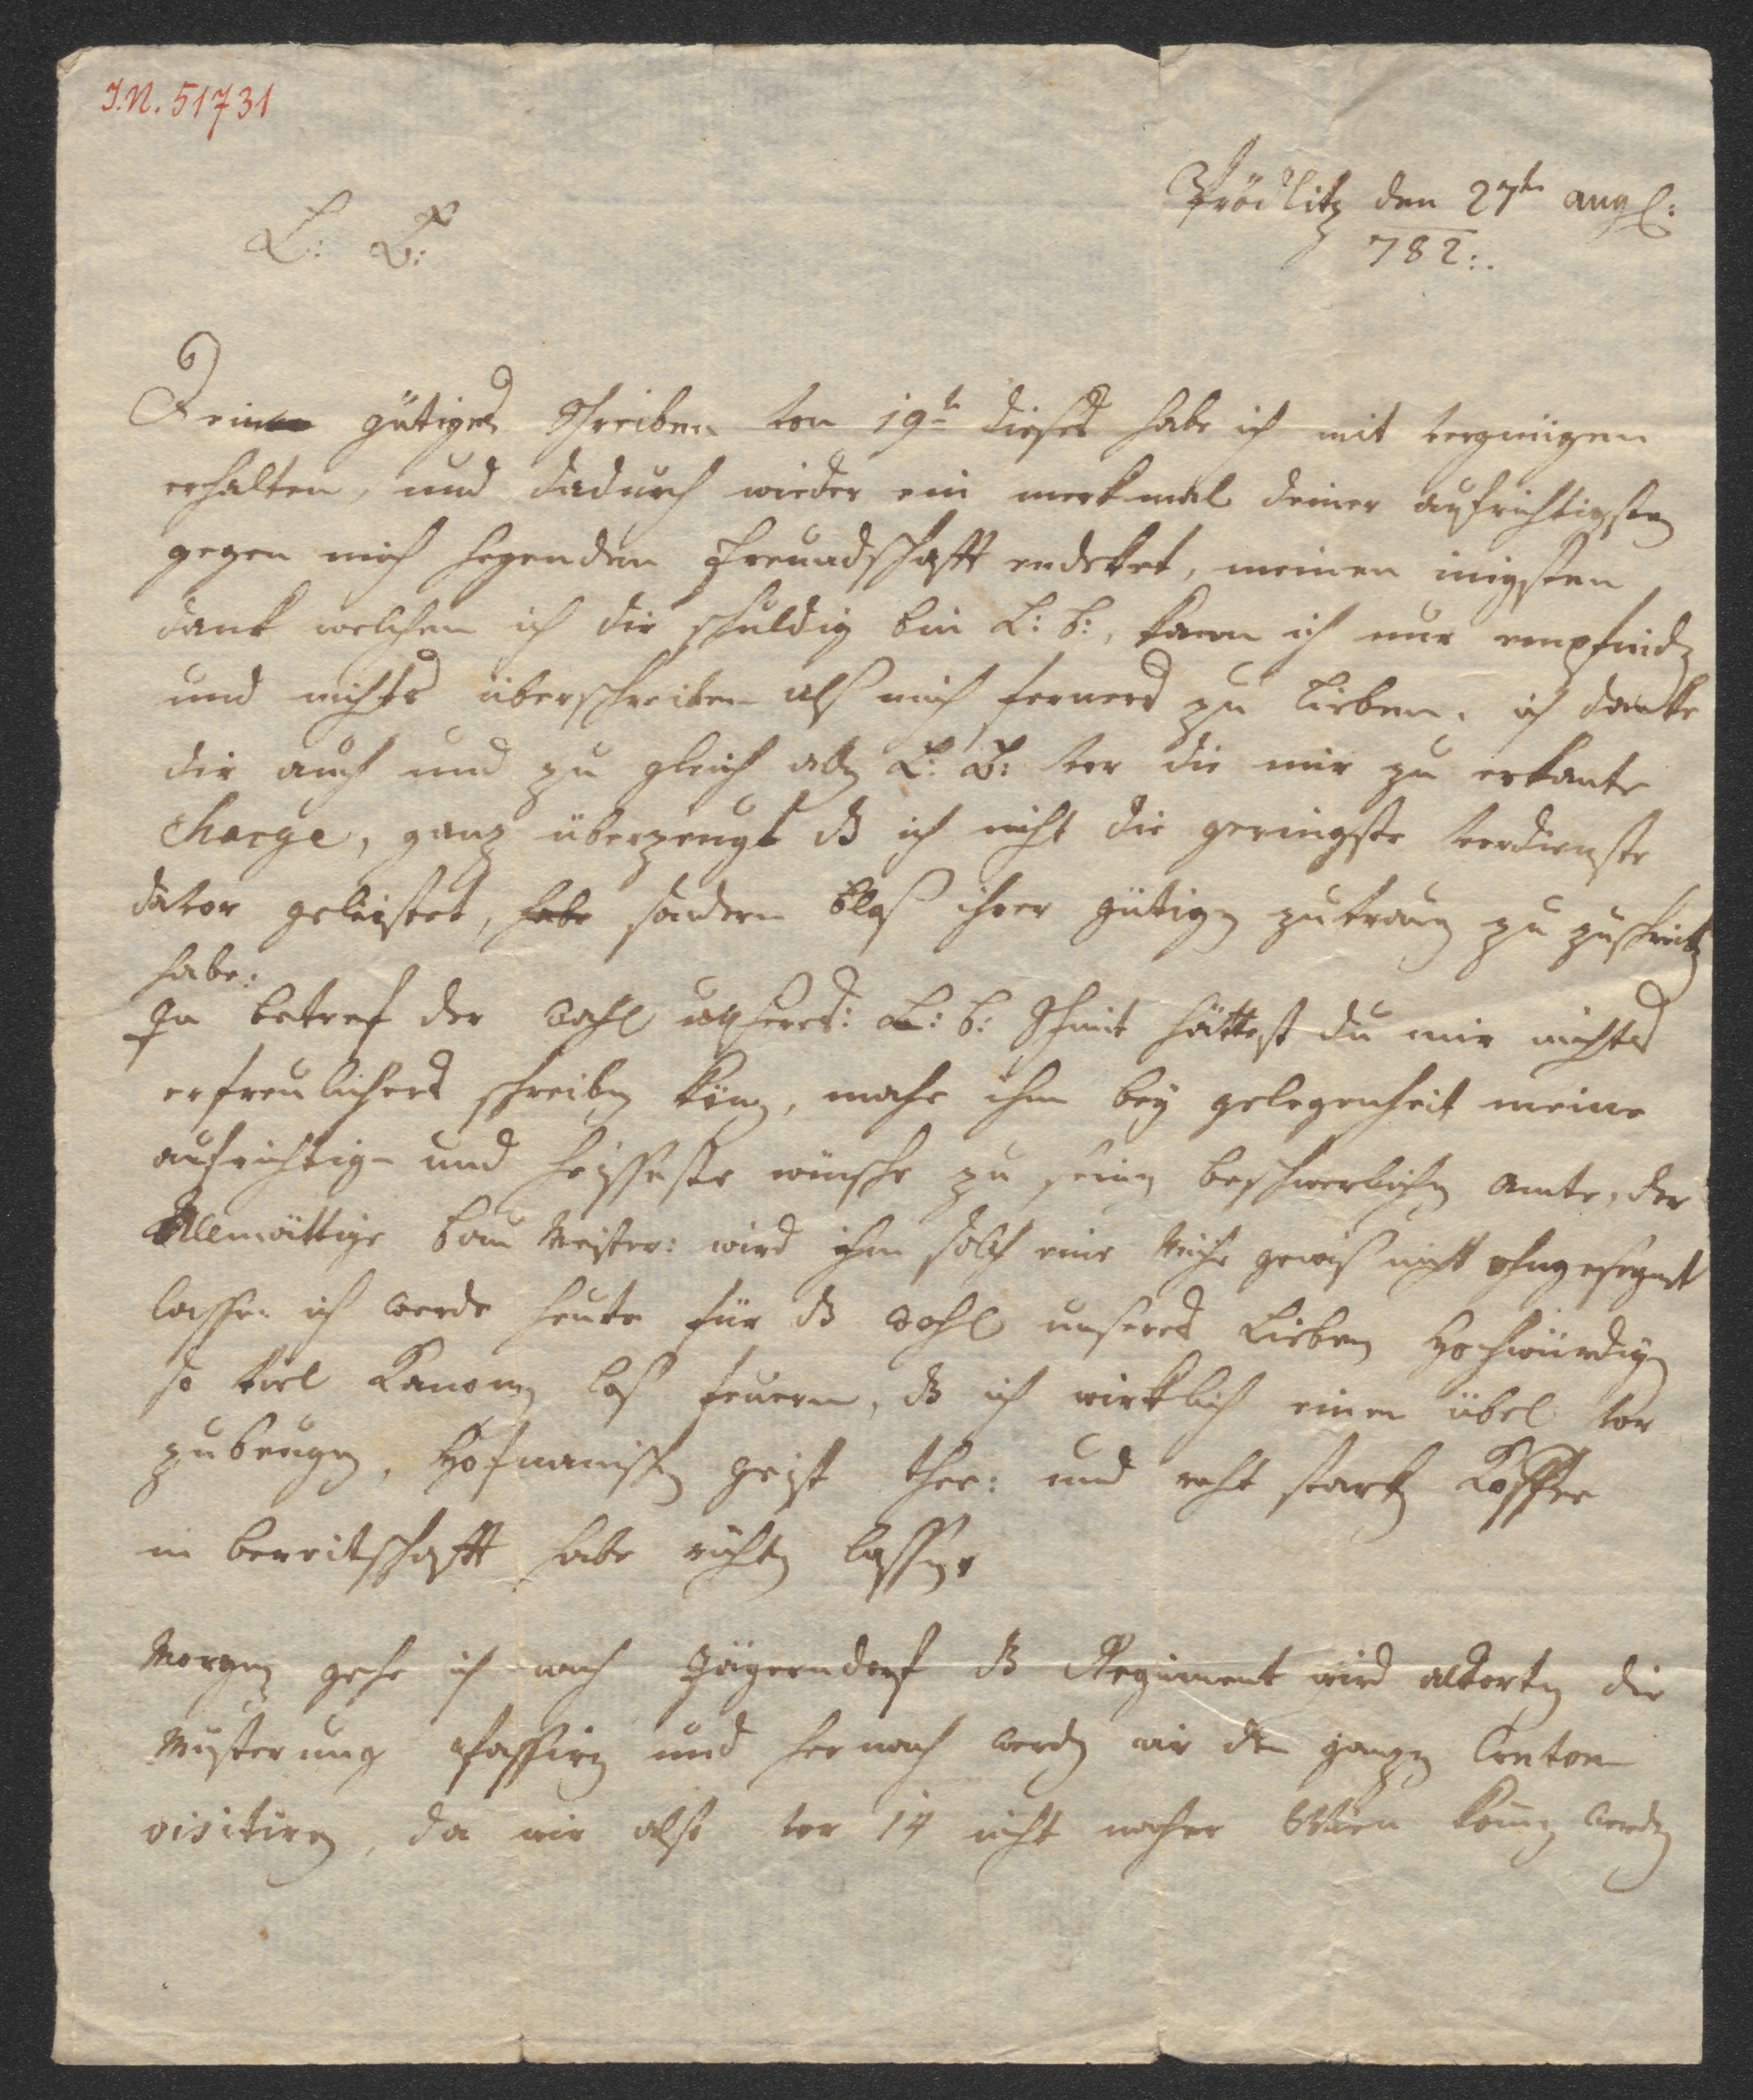 I.N. 51731
Prödlitz den 27ten aug:
782:.
L: B:
Dein gütiges Schreiben von 19t dieses habe ich mit vergnügen
erhalten, und dadurch wieder ein merkmal deiner aufrichtigsten
gegen mich hegenden Freundschafft endeket, meinen inigsten
dank welchen ich dir schuldig bin L: b:, kann ich nur empfinden
und nichts überschreiben als mich ferners zu lieben. ich danke
dir auch und zu gleich allen L: B: vor die mir zu erkante
charge, ganz überzeugt daß ich nicht die geringste verdienste
davor geleistet, habe sondern blos ihrer gütigen zutrauen zu zuschreiben
habe:
In betref der Wahl unseres: L: b: Schmit hättest du mir nichts
erfreulichers schreiben können, mache ihm bey gelegenheit meine
aufrichtig- und heisseste wünsche zu seinen beschwerlichen amte, der
Allmächtige bau Meister: wird ihm solch eine Mühe gewis nicht ohngesegnet
lassen ich werde heute für daß Wohl unseres Lieben Hochwürdigen
so viel Kanonen los feuern, daß ich wirklich einen übel vor
zubeugen, Hofmanischen geist thee: und recht starken Koffee
in bereitschafft habe richten lassen.
Morgen gehe ich nach Jägerndorf daß Regiment wird aldorten die
Musterung passiren und hernach werden wir den ganzen Canton
visitiren, da wir also vor 14 nicht nacher Wien komen werden